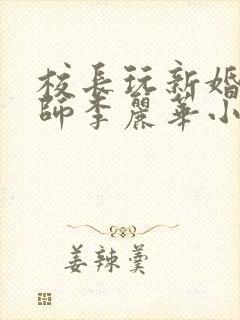 校長玩新婚
師李麗華小
姜辣羹